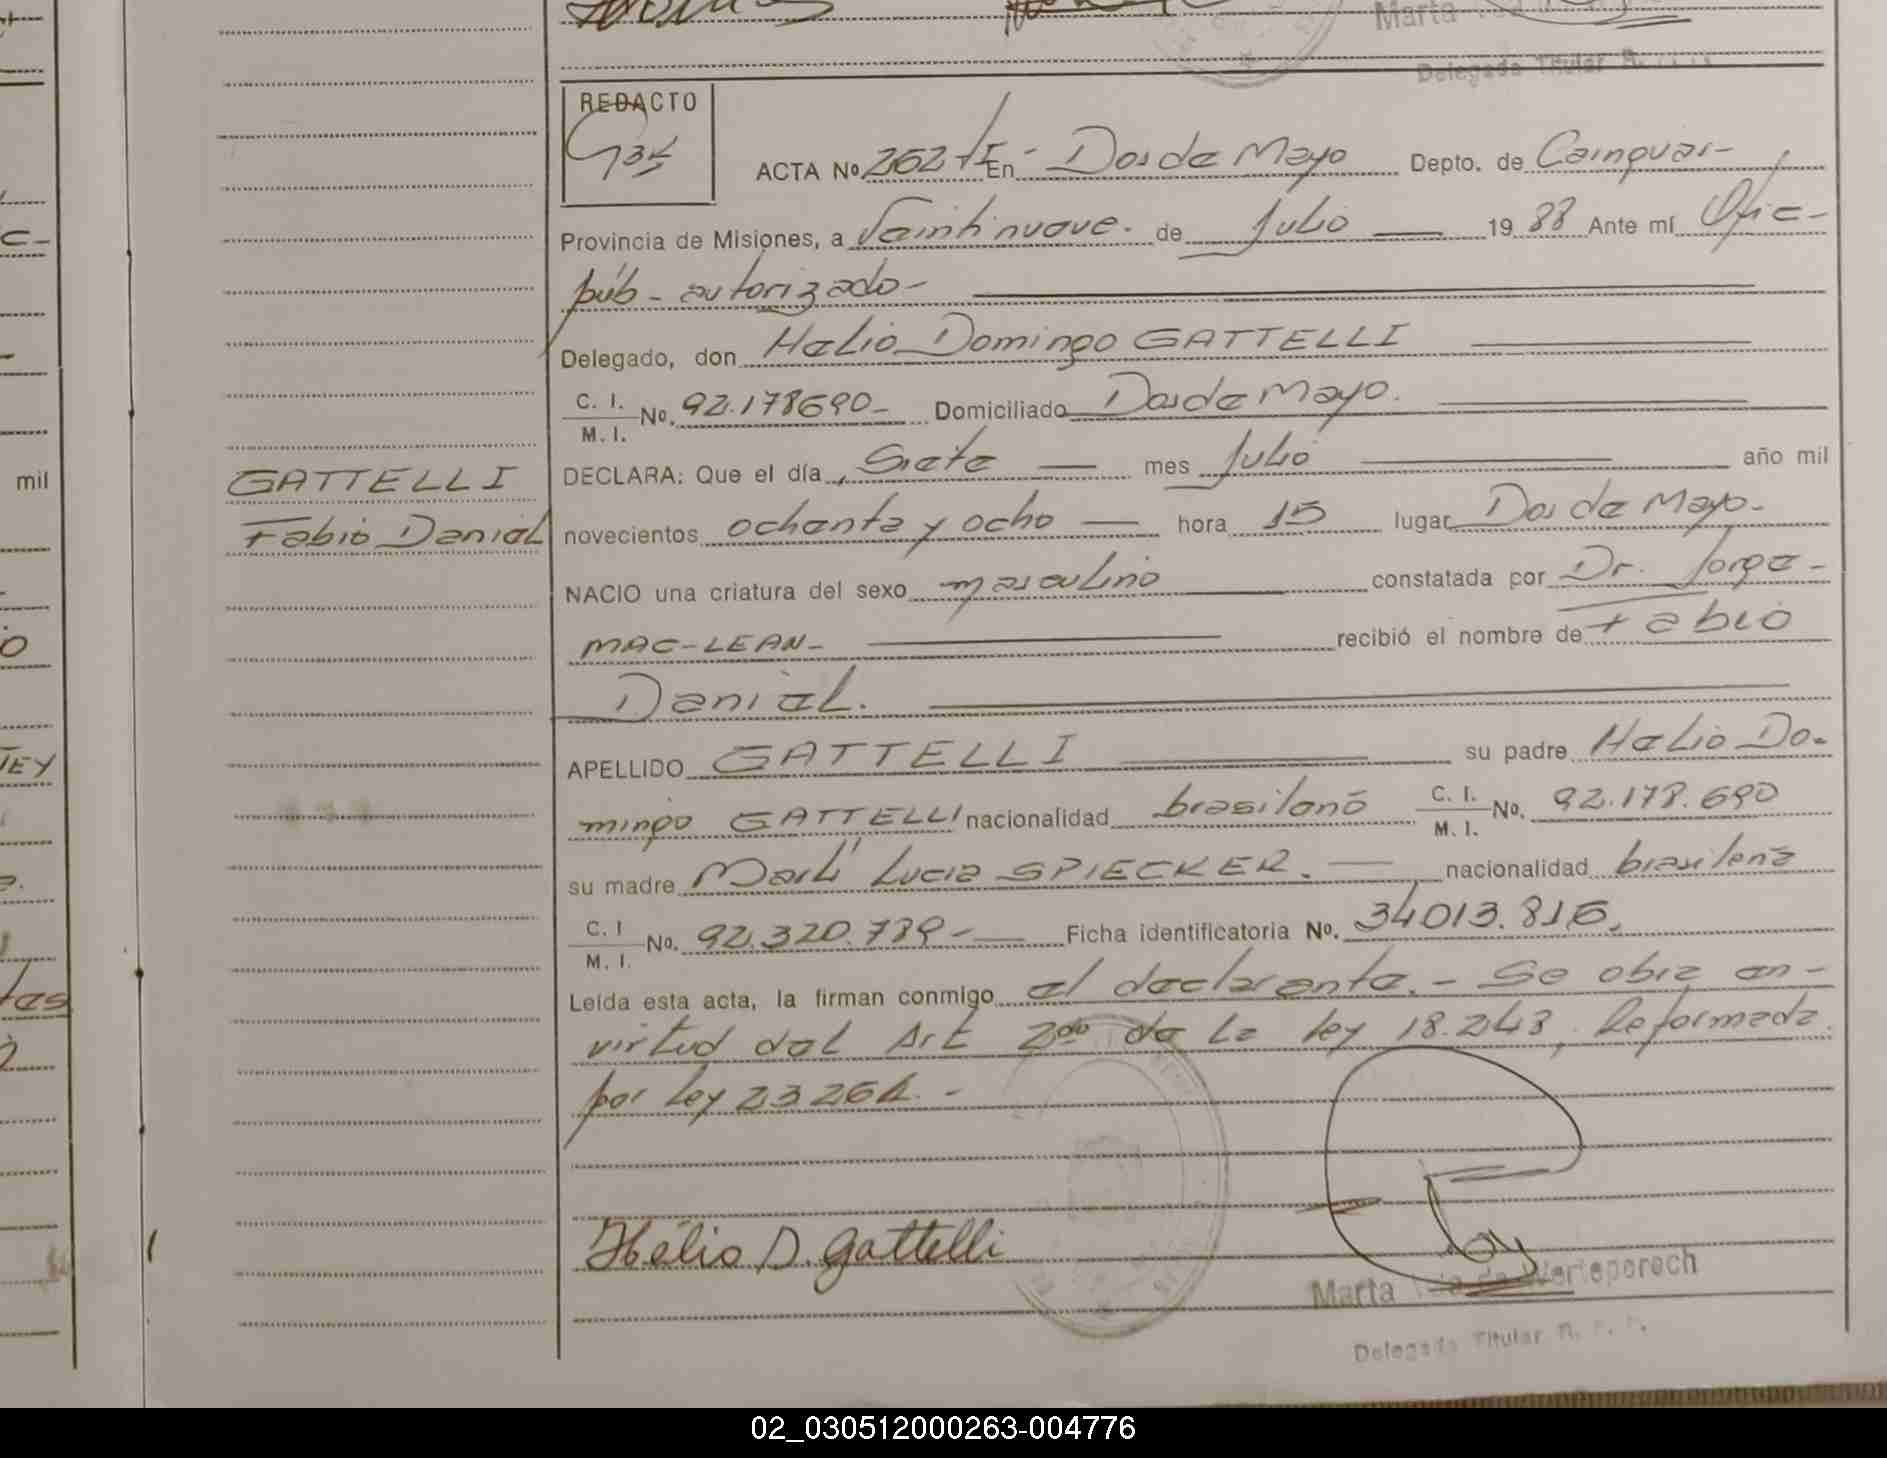 Marta
Delegada Titular R.
REDACTO
ACTA No 262 + I En Dos de Mayo Depto. de Cainguar-
Provincia de Misiones, a Veintinueve. de Julio 19 88 Ante mí Ofic-
púb - autorizado -
Delegado, don Helio Domingo GATTELLI
C. I. M. I. No. 92.178690- Domiciliado Dos de Mayo.
DECLARA: Que el día Siete mes Julio año mil
mil
GATTELLI
Fabio Daniel
novecientos ochenta y ocho hora 15 lugar Dos de Mayo-
NACIO una criatura del sexo masculino constatada por Dr. Jorge-
MAC-LEAN- recibió el nombre de Fabio
Daniel.
APELLIDO GATTELLI su padre Helio Do-
mingo GATTELLI nacionalidad brasileño C. I. M. I. No. 92.178.690
su madre Marli Lucia SPIECKER. nacionalidad brasileña
C. I M. I. No. 92.320.789- Ficha identificatoria No. 34013.816.
Leída esta acta, la firman conmigo el declarante. - Se obra en-
virtud del Art 2do de la ley 18.248, Reformada
por ley 23264. -
Hélio D. Gattelli
Marta de Werleporech
Delegada Titular R.
02_030512000263-004776